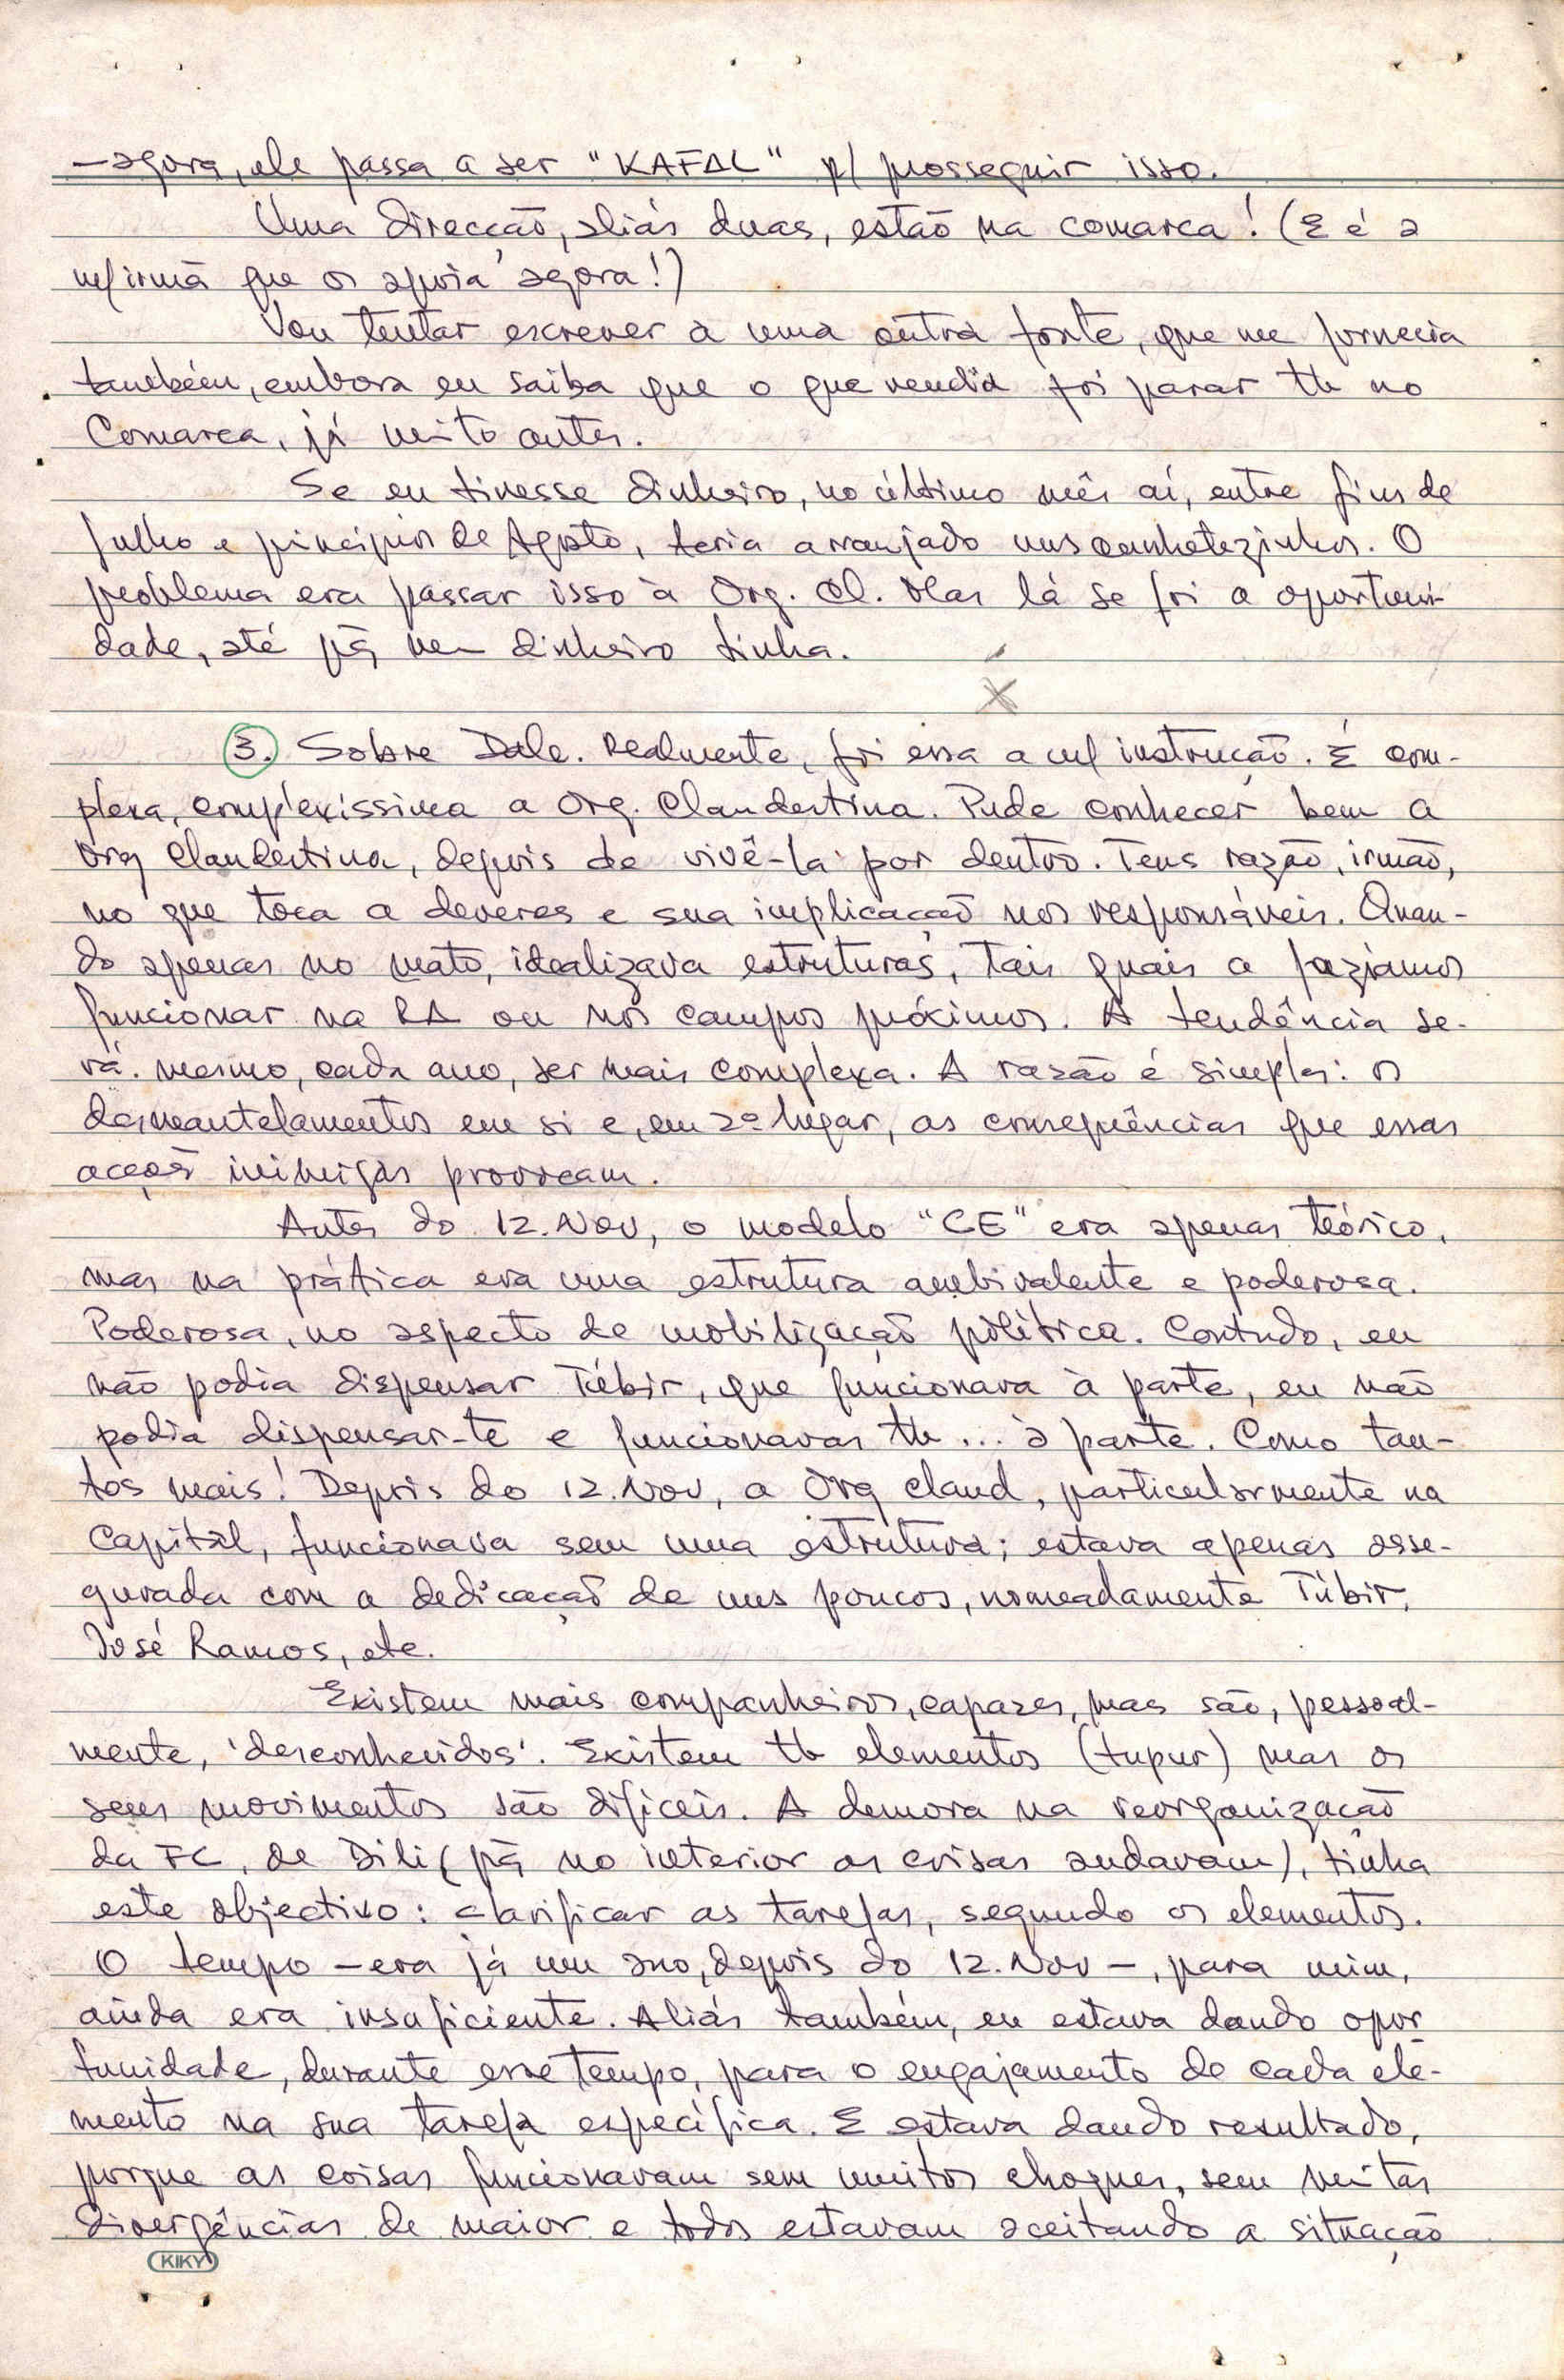 — agora, ele passa a ser "KAFAL" p/ prosseguir isso.
Uma direcção, aliás duas, estão na comarca! (E é a
m/ irmã que os apoia agora!)
Vou tentar escrever a uma outra fonte, que me fornecia
também, embora eu saiba que o que vendia foi parar tb no
Comarca, já muito antes.
Se eu tivesse dinheiro, no último mês aí, entre fins de
Julho e princípios de Agosto, teria arranjado uns cunhetezinhos. O
problema era passar isso à Org. Cl. Mas lá se foi a oportuni-
dade, até pq nem dinheiro tinha.
3. Sobre Dale. Realmente, foi essa a m/ instrução. É com-
plexa, complexíssima a Org. Clandestina. Pude conhecer bem a
Org Clandestina, depois de vivê-la por dentro. Tens razão, irmão,
no que toca a deveres e sua implicação nos responsáveis. Quan-
do apenas no mato, idealizava estruturas, tais quais a fazíamos
funcionar na RA ou nos campos próximos. A tendência se-
rá mesmo, cada ano, ser mais complexa. A razão é simples: os
desmantelamentos em si e, em 2º lugar, as consequências que essas
acções inimigas provocam.
Antes do 12.Nov, o modelo "CE" era apenas teórico,
mas na prática era uma estrutura ambivalente e poderosa.
Poderosa, no aspecto de mobilização política. Contudo, eu
não podia dispensar Túbir, que funcionava à parte, eu não
podia dispensar-te e funcionavas tb ... à parte. Como tan-
tos mais! Depois do 12.Nov, a Org Cland, particularmente na
Capital, funcionava sem uma estrutura; estava apenas asse-
gurada com a dedicação de uns poucos, nomeadamente Túbir,
José Ramos, etc.
Existem mais companheiros, capazes, mas são, pessoal-
mente, 'desconhecidos'. Existem tb elementos (tupur) mas os
seus movimentos são difíceis. A demora na reorganização
da FC, de Dili (pq no interior as coisas andavam), tinha
este objectivo: clarificar as tarefas, segundo os elementos.
O tempo – era já um ano, depois do 12.Nov –, para mim,
ainda era insuficiente. Aliás também, eu estava dando opor
tunidade, durante esse tempo, para o engajamento de cada ele-
mento na sua tarefa específica. E estava dando resultado,
porque as coisas funcionavam sem muitos choques, sem muitas
divergências de maior e todos estavam aceitando a situação
KIKY